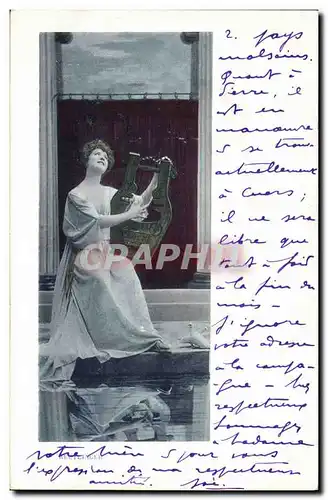 2. pays
malsains.
Quant à
Pierre, il
est en
manœuvre
& se trouve
actuellement
à Cuers;
il ne sera
libre que
tout à fait
à la fin du
mois –
J'ignore
votre adresse
à la campa-
gne – Mes
respectueux
hommages
à Madame
votre mère & pour vous
l'expression de ma respectueuse
amitié.
CAP